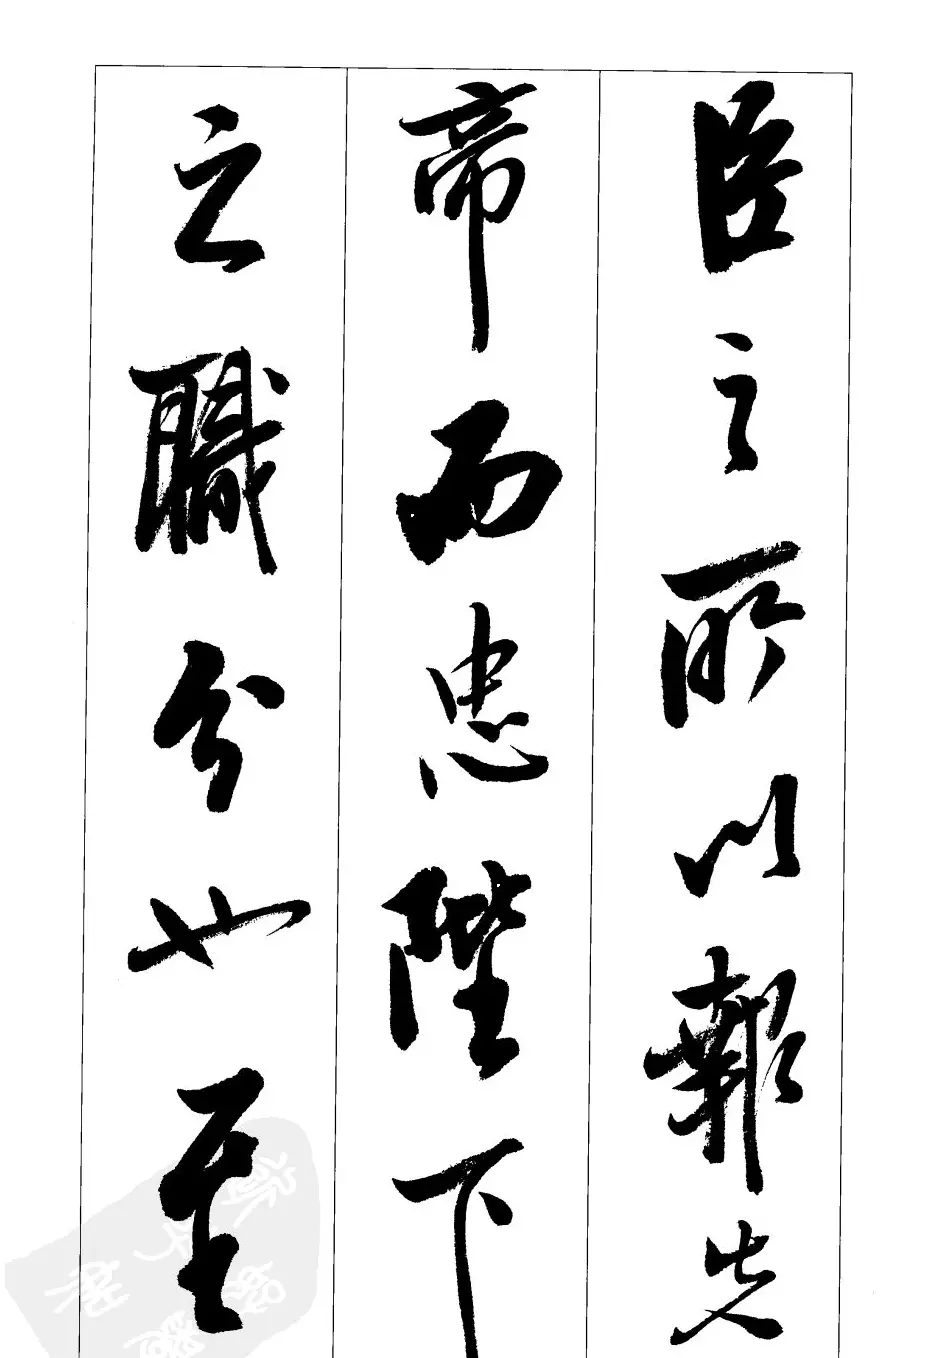 臣之所以報先
帝而忠陛下
之職分也至